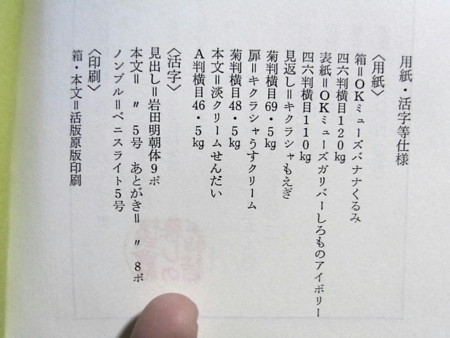 用紙・活字等仕様
〈用紙〉
箱＝OKミューズバナナくるみ
四六判横目120kg
表紙＝OKミューズガリバーしろものアイボリー
四六判横目110kg
見返し＝キクラシャもえぎ
菊判横目69・5kg
扉＝キクラシャうすクリーム
菊判横目48・5kg
本文＝淡クリームせんだい
A判横目46・5kg
〈活字〉
見出し＝岩田明朝体9ポ
本文＝　〃　5号　あとがき＝　〃　8ポ
ノンブル＝ベニスライト5号
〈印刷〉
箱・本文＝活版原版印刷